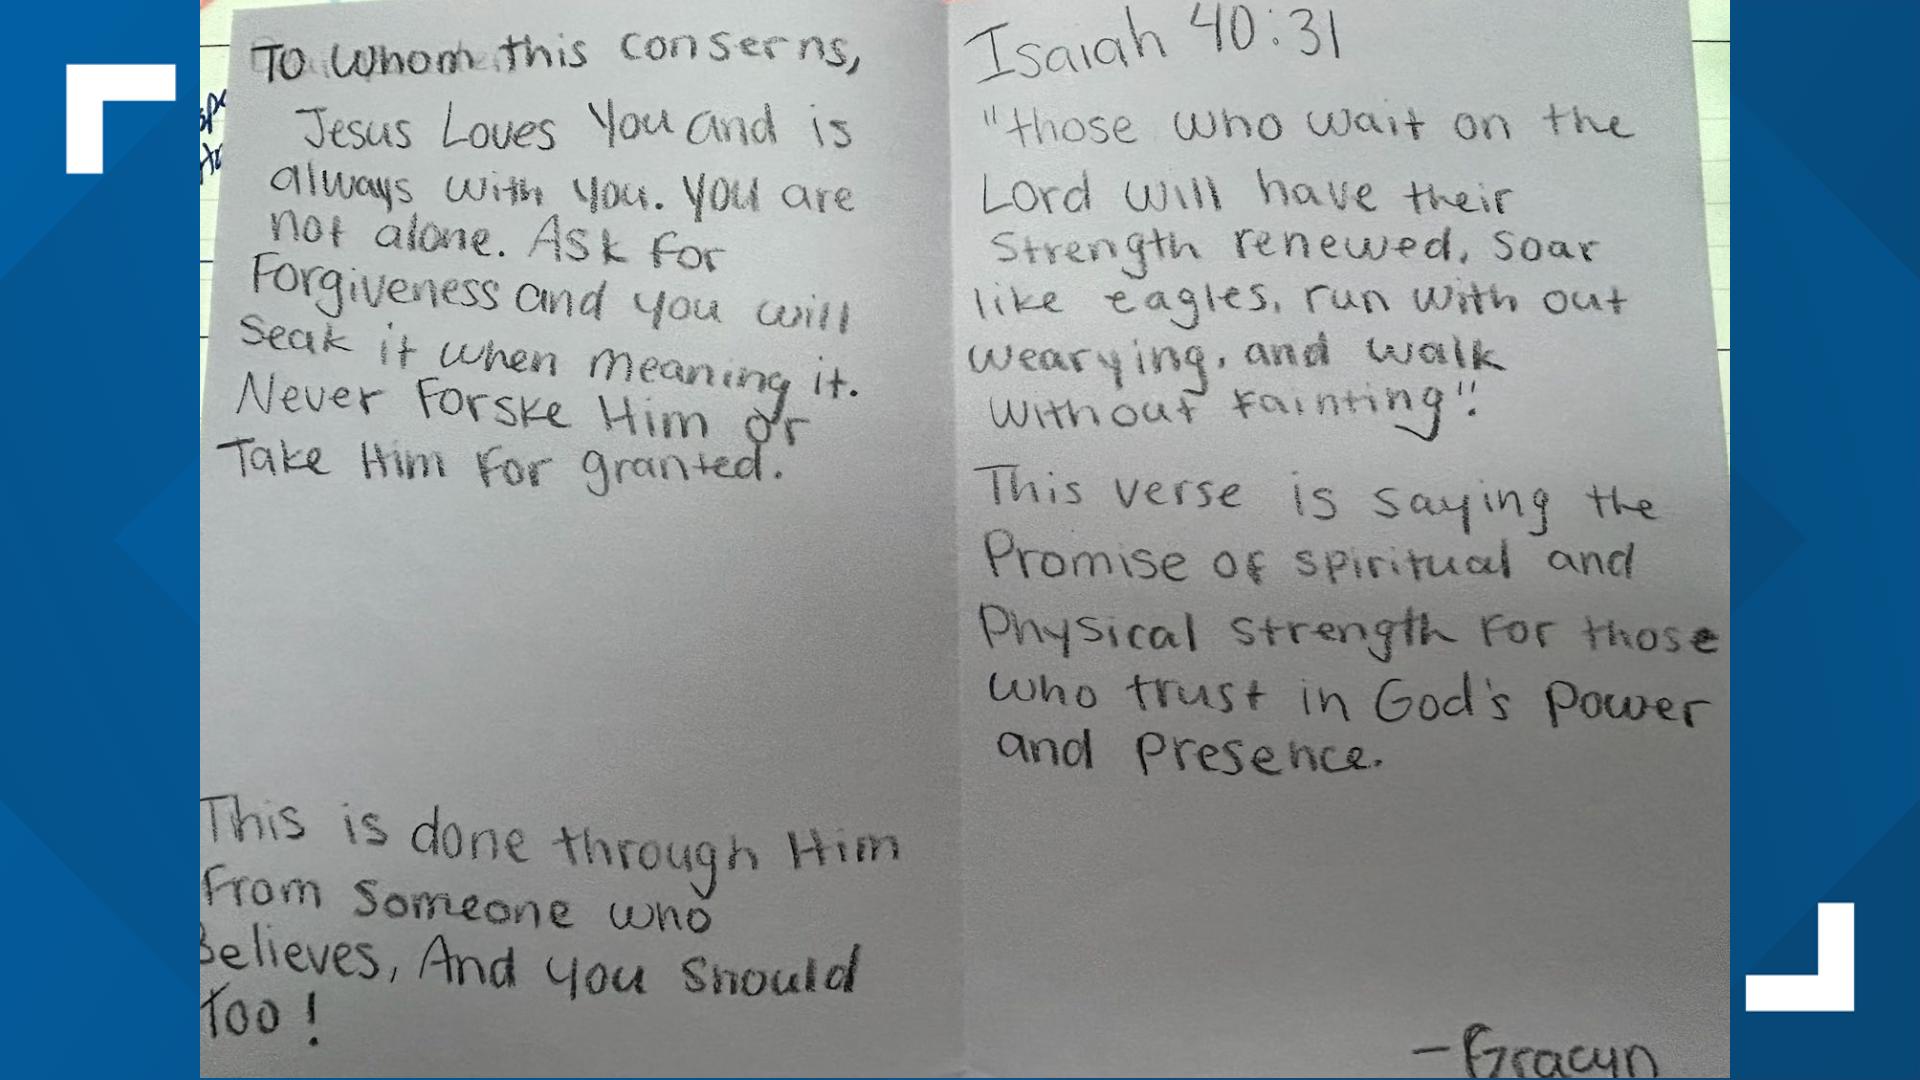 To Whom this conserns,
Jesus Loves You and is
always with you. You are
not alone. Ask for
Forgiveness and you will
Seak it when meaning it.
Never Forske Him or
Take Him for granted.
This is done through Him
From Someone who
Believes, And you Should
Too!
Isaiah 40:31
"those who wait on the
Lord will have their
Strength renewed, soar
like eagles, run with out
wearying, and walk
without fainting".
This verse is saying the
Promise of spiritual and
Physical strength for those
who trust in God's Power
and Presence.
- Gracyn